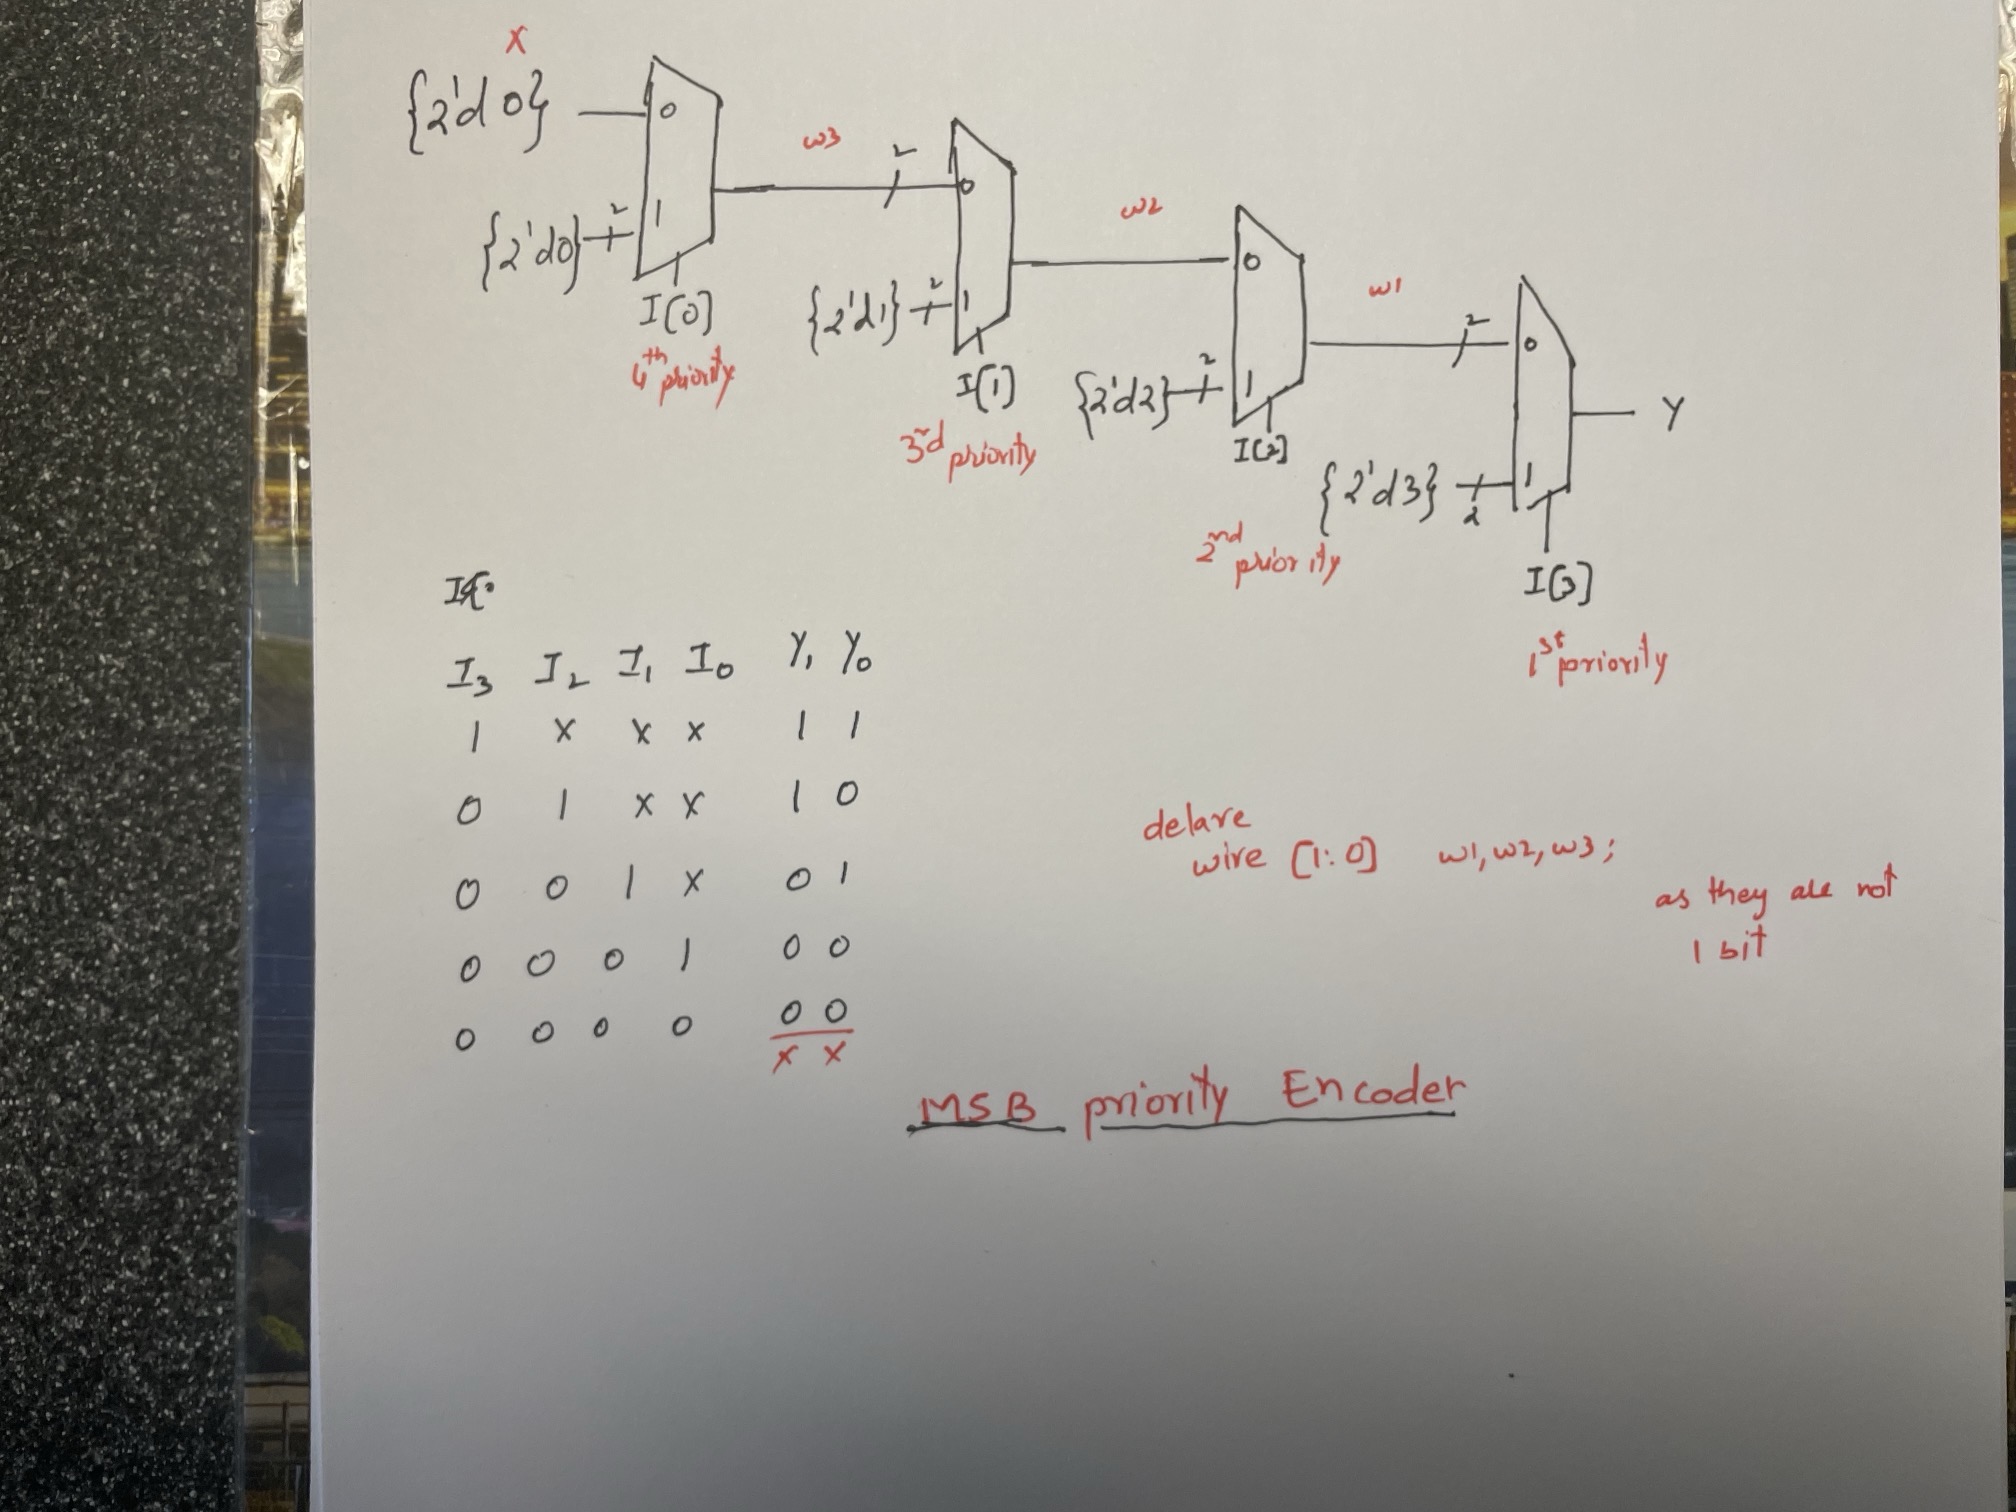 x
{2'd 0}
0
w3
2
0
{2'd0}
2
1
w2
I[0]
4th priority
{2'd1}
2
1
0
w1
I[1]
3rd priority
{2'd2}
2
1
2
0
Y
I[2]
{2'd3}
2
1
2nd priority
I[3]
1st priority
I3 I2 I1 I0 Y1 Y0
1 x x x 1 1
0 1 x x 1 0
0 0 1 x 0 1
0 0 0 1 0 0
0 0 0 0 0 0
x x
delare
wire [1:0] w1, w2, w3;
as they are not
1 bit
MSB priority Encoder